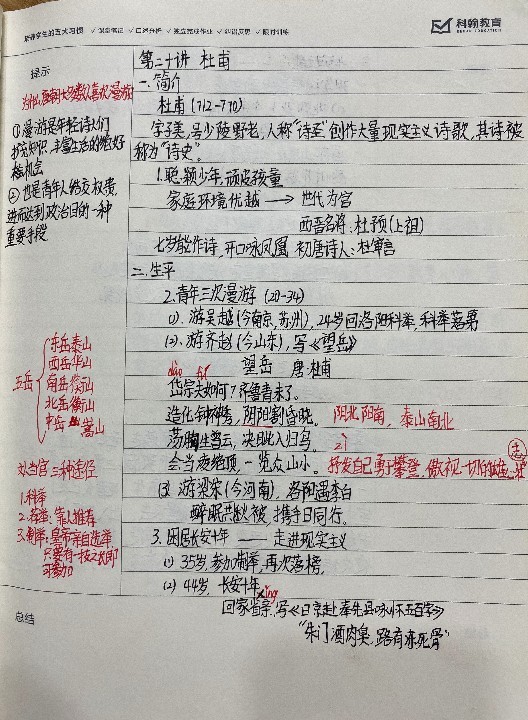 培养学生的五大习惯 ✓课堂笔记 ✓口述分析 ✓独立完成作业 ✓纠错反思 ✓限时训练
科翰教育
KEHAN EDUCATION
提示
为什么唐朝大多数人喜欢漫游
①漫游是年轻诗人们
扩充知识,丰富生活的绝好
机会
②也是青年人结交权贵,
进而达到政治目的一种
重要手段
五岳
东岳泰山
西岳华山
南岳衡山
北岳衡山
中岳嵩山
刘当官三种途径
1.科举
2.荐举:靠人推荐
3.制举:皇帝亲自选举
只要有一技之长即
可参加
总结
第二十讲 杜甫
一.简介
杜甫(712-770)
字子美,号少陵野老,人称“诗圣”创作大量现实主义诗歌,其诗被
称为“诗史”。
1.聪颖少年,顽皮孩童
家庭环境优越→世代为官
西晋名将:杜预(上祖)
七岁能作诗,开口咏凤凰 初唐诗人:杜审言
二.生平
2.青年三次漫游(20-34)
(1).游吴越(今南京,苏州),24岁回洛阳科举,科举落第
(2).游齐赵(今山东),写《望岳》
望岳 唐·杜甫
dài fū
岱宗夫如何?齐鲁青未了。
造化钟神秀,阴阳割昏晓。阴北阳南,泰山南北
荡胸生曾云,决眦入归鸟。
会当凌绝顶,一览众山小。抒发自己勇于攀登,傲视一切的
(3) 游梁宋(今河南),洛阳遇李白
醉眠共秋被,携手日同行。
3.困居长安十年——走进现实主义
(1) 35岁,参加制举,再次落榜,
(2) 44岁,长安十年
回家省亲,写《自京赴奉先县咏怀五百字》
“朱门酒肉臭,路有冻死骨”